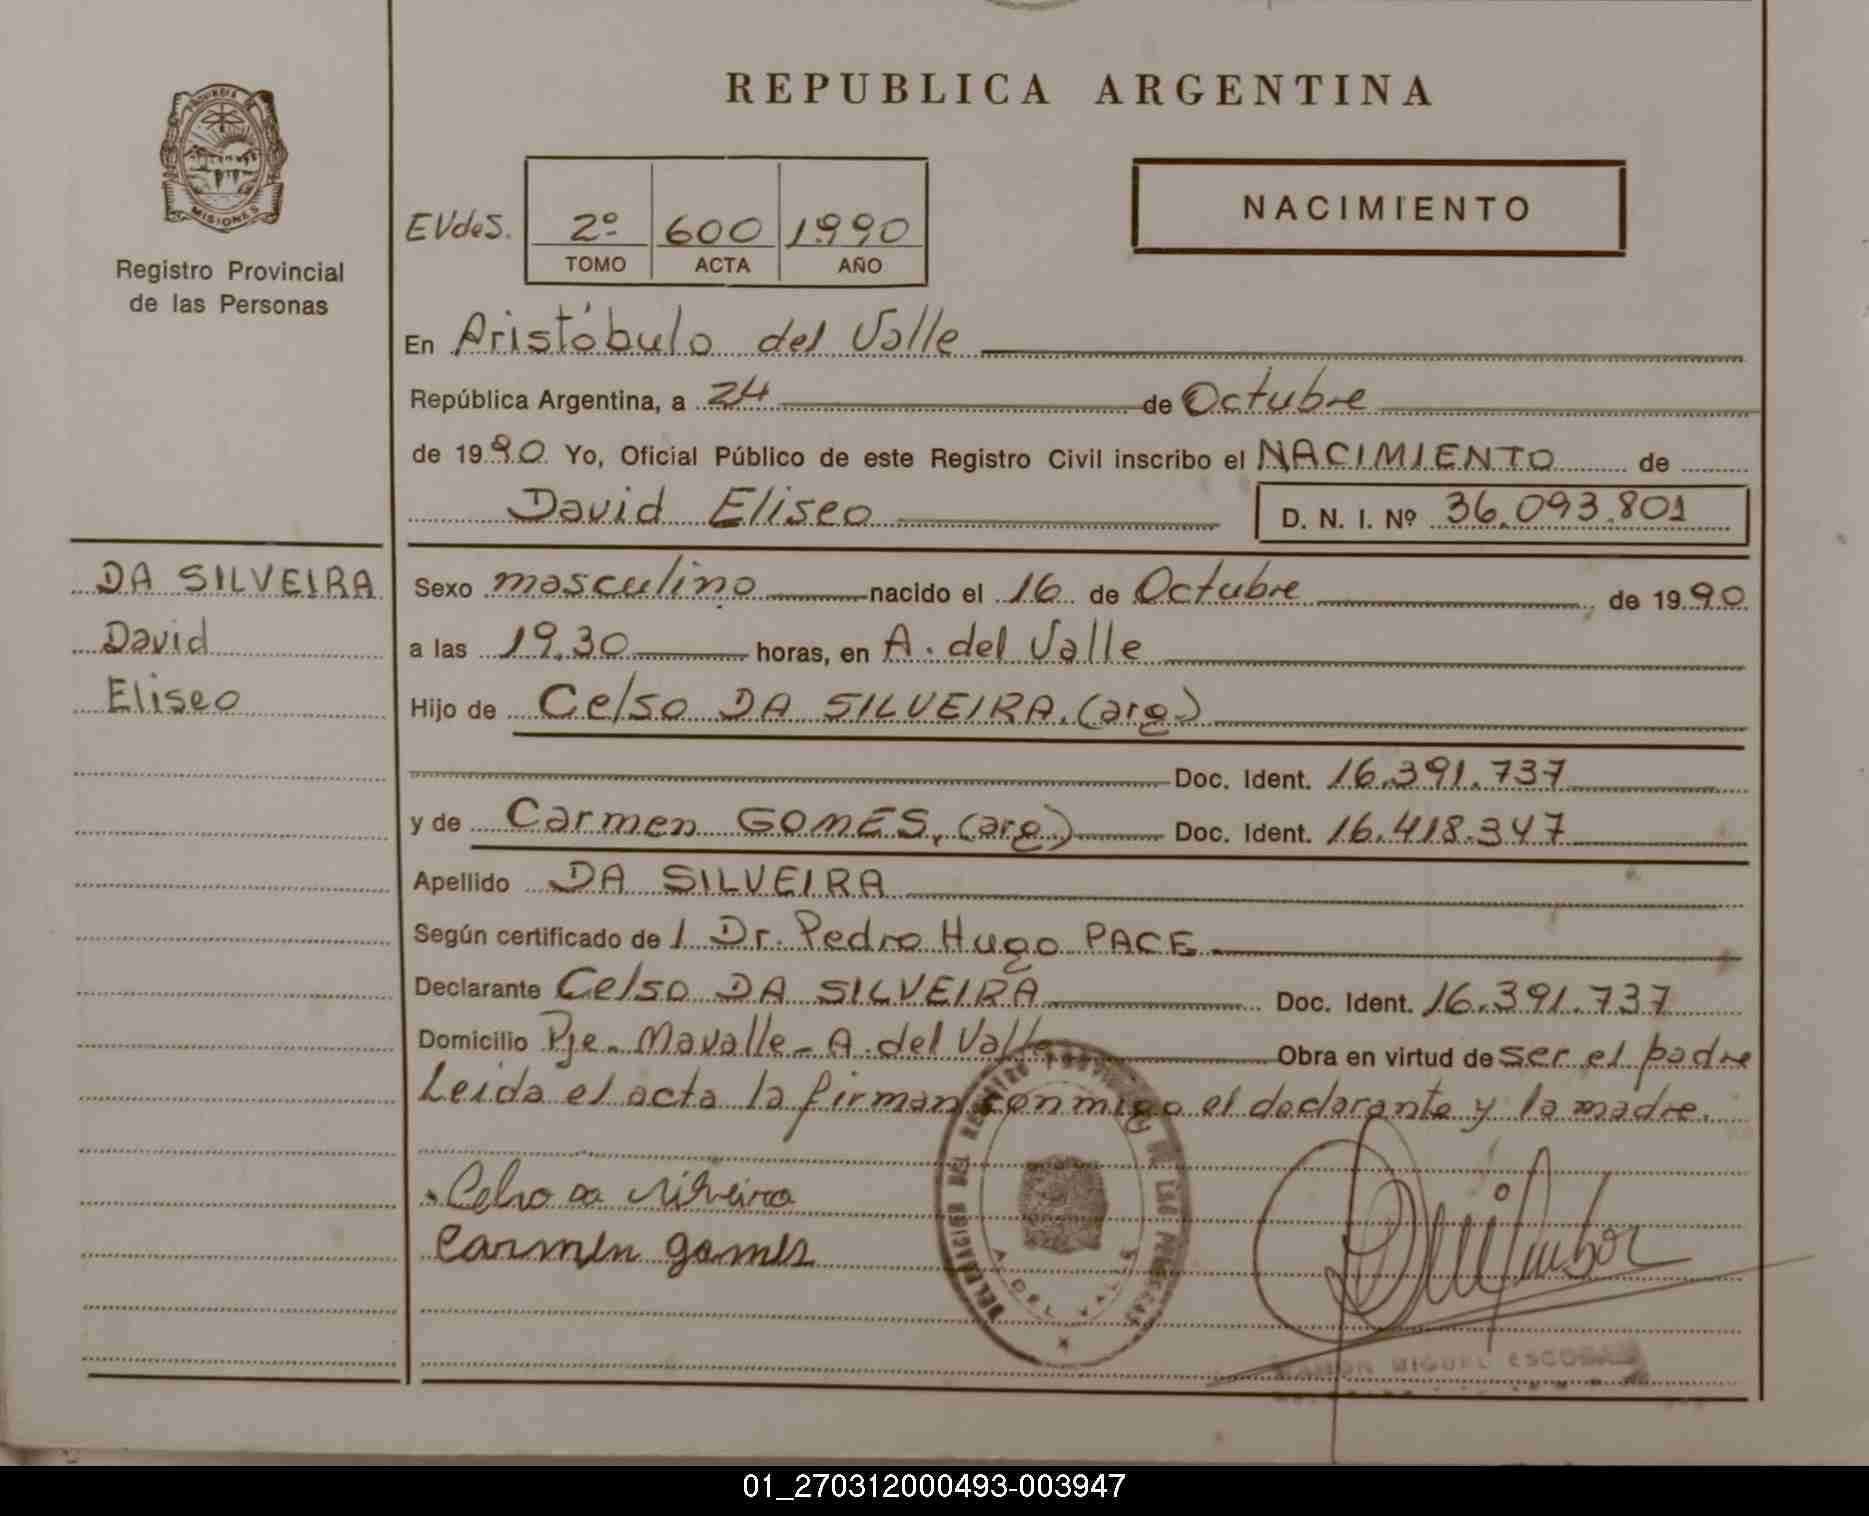 REPUBLICA ARGENTINA
PROVINCIA DE
MISIONES
Registro Provincial
de las Personas
EVdeS.
2º 600 1990
TOMO ACTA AÑO
NACIMIENTO
En Aristóbulo del Valle
República Argentina, a 24 de Octubre
de 1990 Yo, Oficial Público de este Registro Civil inscribo el NACIMIENTO de
David Eliseo D. N. I. Nº 36.093.801
DA SILVEIRA
David
Eliseo
Sexo masculino nacido el 16 de Octubre de 1990
a las 19.30 horas, en A. del Valle
Hijo de Celso DA SILVEIRA. (arg)
Doc. Ident. 16.391.737
y de Carmen GOMES, (arg) Doc. Ident. 16.418.347
Apellido DA SILVEIRA
Según certificado de l Dr. Pedro Hugo PACE
Declarante Celso DA SILVEIRA Doc. Ident. 16.391.737
Domicilio Pje. Mavalle - A. del Valle Obra en virtud de ser el padre
Leida el acta la firman conmigo el declarante y la madre.
Celso da Silveira
Carmen gomes
DELEGACION DEL REGISTRO PROVINCIAL DE LAS PERSONAS
A. DEL VALLE
RAMON MIGUEL ESCOBAR
01_270312000493-003947